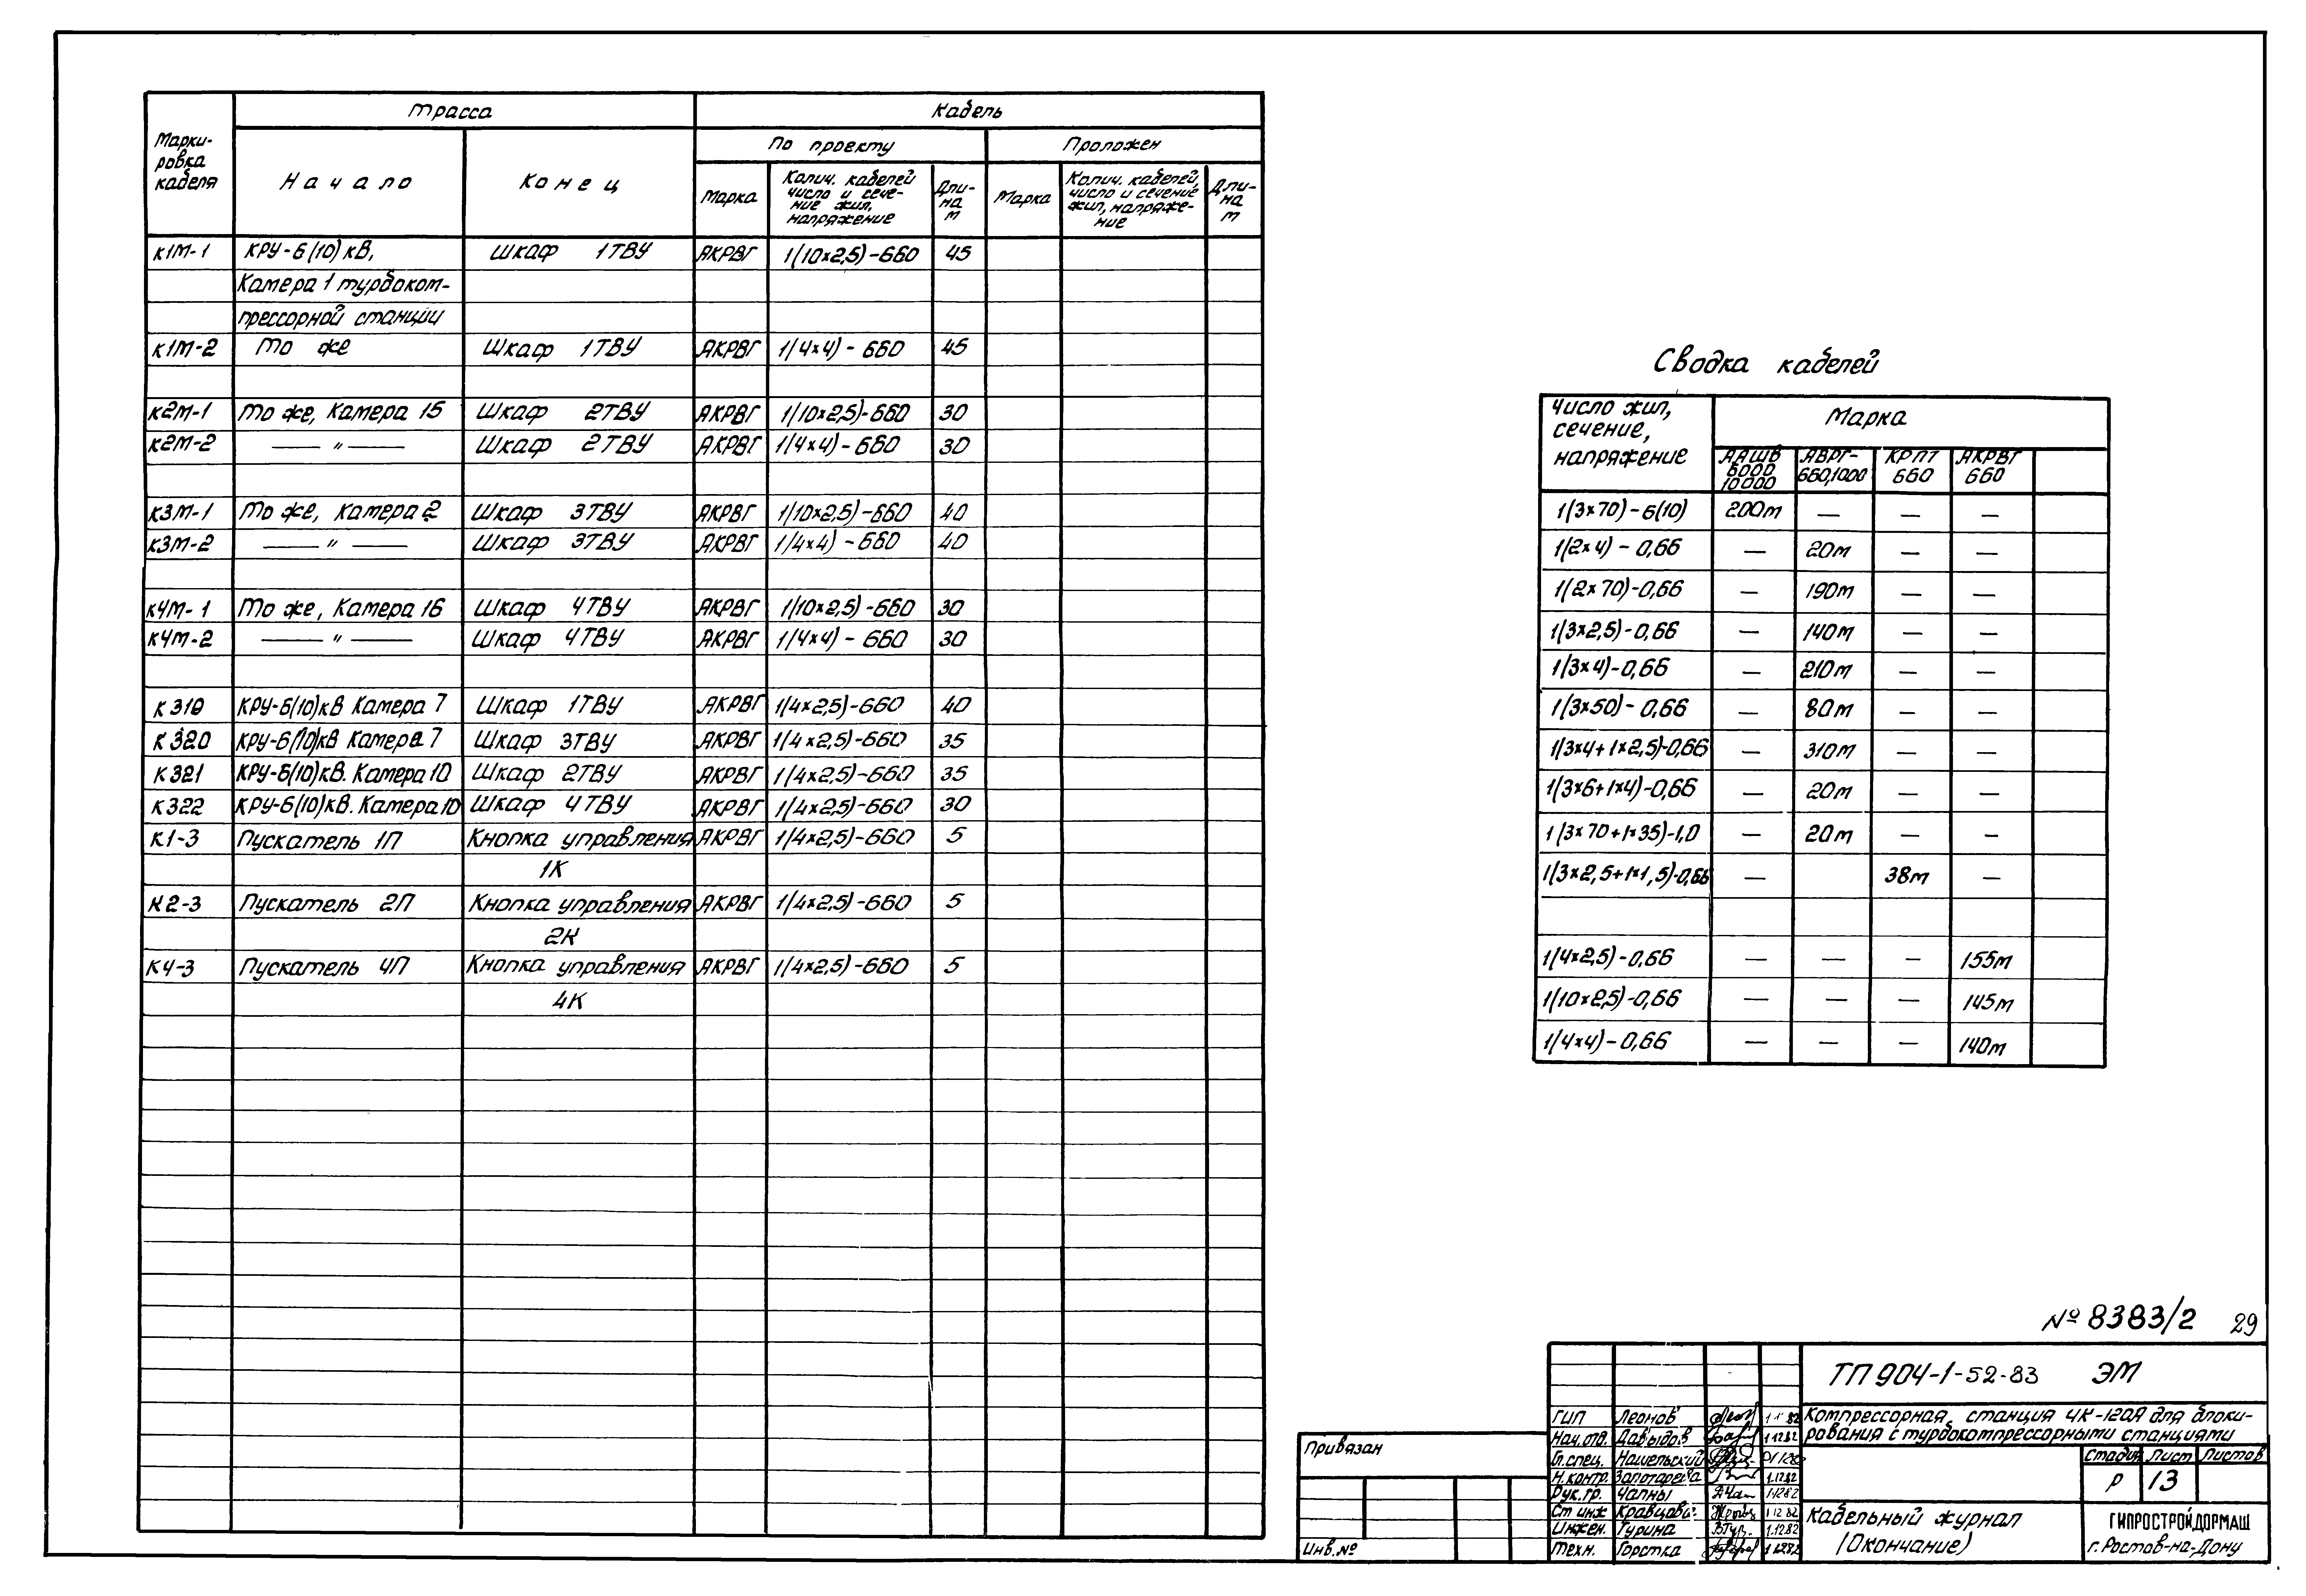 Трасса
Кабель
Марки-
ровка
кабеля
Начало
Конец
По проекту
Проложен
Марка
Колич. кабелей
число и сече-
ние жил,
напряжение
Дли-
на
м
Марка
Колич. кабелей,
число и сечение
жил, напряже-
ние
Дли-
на
м
К1М-1 КРУ-6(10)кВ, Шкаф 1ТВУ АКРВГ 1(10×2,5)-660 45
Камера 1 турбоком-
прессорной станции
К1М-2 То же Шкаф 1ТВУ АКРВГ 1(4×4)-660 45
К2М-1 То же, Камера 15 Шкаф 2ТВУ АКРВГ 1(10×2,5)-660 30
К2М-2 — " — Шкаф 2ТВУ АКРВГ 1(4×4)-660 30
К3М-1 То же, Камера 2 Шкаф 3ТВУ АКРВГ 1(10×2,5)-660 40
К3М-2 — " — Шкаф 3ТВУ АКРВГ 1(4×4)-660 40
К4М-1 То же, Камера 16 Шкаф 4ТВУ АКРВГ 1(10×2,5)-660 30
К4М-2 — " — Шкаф 4ТВУ АКРВГ 1(4×4)-660 30
К319 КРУ-6(10)кВ Камера 7 Шкаф 1ТВУ АКРВГ 1(4×2,5)-660 40
К320 КРУ-6(10)кВ Камера 7 Шкаф 3ТВУ АКРВГ 1(4×2,5)-660 35
К321 КРУ-6(10)кВ. Камера 10 Шкаф 2ТВУ АКРВГ 1(4×2,5)-660 35
К322 КРУ-6(10)кВ. Камера 10 Шкаф 4ТВУ АКРВГ 1(4×2,5)-660 30
К1-3 Пускатель 1П Кнопка управления АКРВГ 1(4×2,5)-660 5
1К
К2-3 Пускатель 2П Кнопка управления АКРВГ 1(4×2,5)-660 5
2К
К4-3 Пускатель 4П Кнопка управления АКРВГ 1(4×2,5)-660 5
4К
Сводка кабелей
Число жил,
сечение,
напряжение
Марка
ААШВ
6000
10000
АВРГ-
660,1000
КРПТ
660
АКРВГ
660
1(3×70)-6(10) 200м — — —
1(2×4)-0,66 — 20м — —
1(2×70)-0,66 — 190м — —
1(3×2,5)-0,66 — 140м — —
1(3×4)-0,66 — 210м — —
1(3×50)-0,66 — 80м — —
1(3×4+1×2,5)-0,66 — 310м — —
1(3×6+1×4)-0,66 — 20м — —
1(3×70+1×35)-1,0 — 20м — —
1(3×2,5+1×1,5)-0,66 — 38м —
1(4×2,5)-0,66 — — — 155м
1(10×2,5)-0,66 — — — 145м
1(4×4)-0,66 — — — 140м
№ 8383/2 29
ТП 904-1-52-83 ЭМ
Компрессорная станция 4К-120А для блоки-
рования с турбокомпрессорными станциями
Стадия Лист Листов
Р 13
Кабельный журнал
(Окончание)
ГИПРОСТРОЙДОРМАШ
г. Ростов-на-Дону
ГИП Леонов
Нач. отд. Давыдов 1.12.82
Гл. спец. Нашельский
Н. контр. Золотарева 1.12.82
Рук. гр. Чапны 1.12.82
Ст инж Кравцова 1.12.82
Инжен. Турина 1.12.82
Техн. Горстка 1.12.82
Привязан
Инв. №